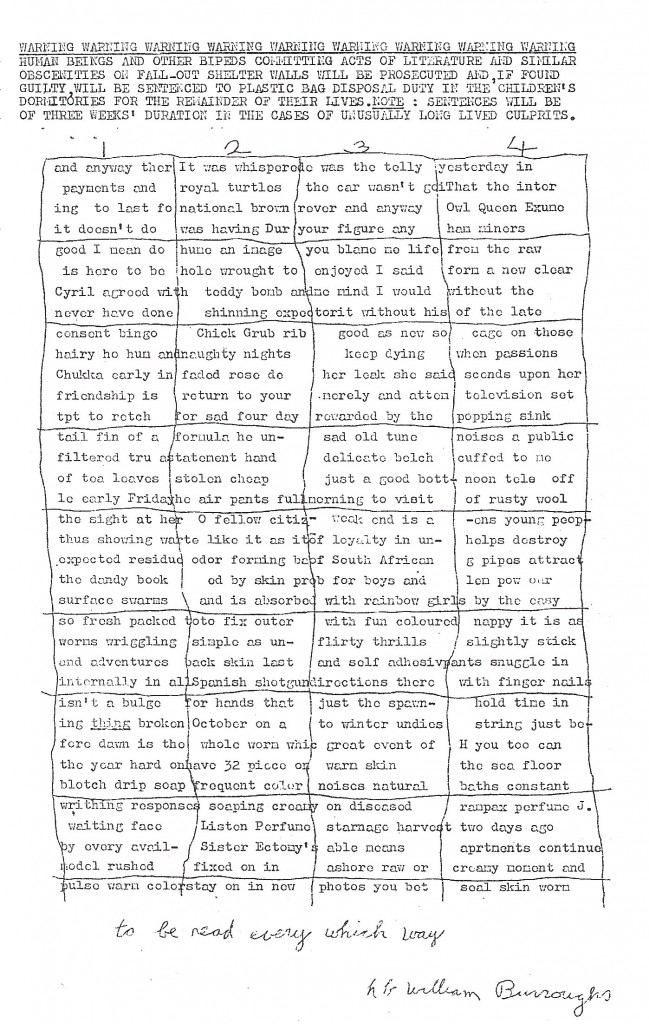 WARNING WARNING WARNING WARNING WARNING WARNING WARNING WARNING WARNING
HUMAN BEINGS AND OTHER BIPEDS COMMITTING ACTS OF LITERATURE AND SIMILAR
OBSCENITIES ON FALL-OUT SHELTER WALLS WILL BE PROSECUTED AND, IF FOUND
GUILTY, WILL BE SENTENCED TO PLASTIC BAG DISPOSAL DUTY IN THE CHILDREN'S
DORMITORIES FOR THE REMAINDER OF THEIR LIVES. NOTE : SENTENCES WILL BE
OF THREE WEEKS' DURATION IN THE CASES OF UNUSUALLY LONG LIVED CULPRITS.
1 2 3 4
and anyway ther It was whispered e was the telly yesterday in
payments and royal turtles the car wasn't goi That the inter
ing to last fo national brown rever and anyway Owl Queen Exume
it doesn't do was having Dur your figure any han miners
good I mean do hume an image you blame me life from the raw
is here to be hole wrought to enjoyed I said form a new clear
Cyril agreed with teddy bomb and me mind I would without the
never have done shinning expectorit without his of the late
consent bingo Chick Grub rib good as new so cage on those
hairy he hum and naughty nights keep dying when passions
Chukka early in faded rose de her leak she said scends upon her
friendship is return to your merely and atten television set
tpt to retch for sad four day rewarded by the popping sink
tail fin of a formula he un- sad old tune noises a public
filtered tru a statement hand delicate belch cuffed to me
of tea leaves stolen cheap just a good bott- noon tele off
le early Friday he air pants full morning to visit of rusty wool
the sight at her O fellow citiz- weak end is a -ens young peop-
thus showing wa te like it as it of loyalty in un- helps destroy
expected residue odor forming ba of South African g pipes attract
the dandy book ed by skin prob for boys and len pow our
surface swarms and is absorbed with rainbow girls by the easy
so fresh packed to to fix outer with fun coloured nappy it is as
worms wriggling simple as un- flirty thrills slightly stick
and adventures back skin last and self adhesiv pants snuggle in
internally in all Spanish shotgun directions there with finger nails
isn't a bulge for hands that just the spawn- hold time in
ing thing broken October on a to winter undies string just be-
fore dawn is the whole worn whic great event of H you too can
the year hard on have 32 piece or warm skin the sea floor
blotch drip soap frequent color noises natural baths constant
writhing responses soaping creamy on diseased rampax perfume J.
waiting face Listen Perfume starnage harvest two days ago
by every avail- Sister Ectomy's able means aprtments continue
model rushed fixed on in ashore raw or creamy moment and
pulse warm color stay on in new photos you bet seal skin worn
to be read every which way
William Burroughs